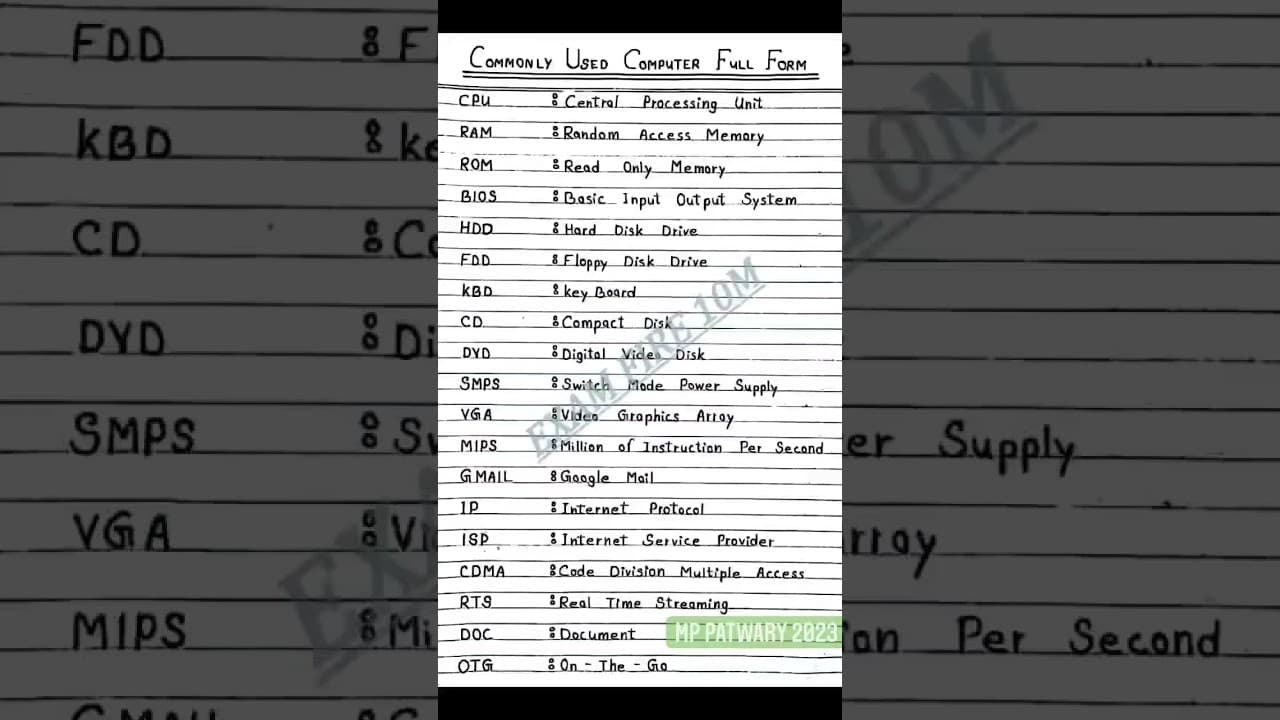 COMMONLY USED COMPUTER FULL FORM
CPU : Central Processing Unit
RAM : Random Access Memory
ROM : Read Only Memory
BIOS : Basic Input Output System
HDD : Hard Disk Drive
FDD : Floppy Disk Drive
KBD : Key Board
CD : Compact Disk
DVD : Digital Video Disk
SMPS : Switch Mode Power Supply
VGA : Video Graphics Array
MIPS : Million of Instruction Per Second
GMAIL : Google Mail
IP : Internet Protocol
ISP : Internet Service Provider
CDMA : Code Division Multiple Access
RTS : Real Time Streaming
DOC : Document
OTG : On - The - Go
EXAM FIRE 10M
MP PATWARY 2023
FDD : F
KBD : Ke
CD : Co
DVD : Di
SMPS : Sw
er Supply
VGA : Vi
rray
MIPS : Mi
on Per Second
10M